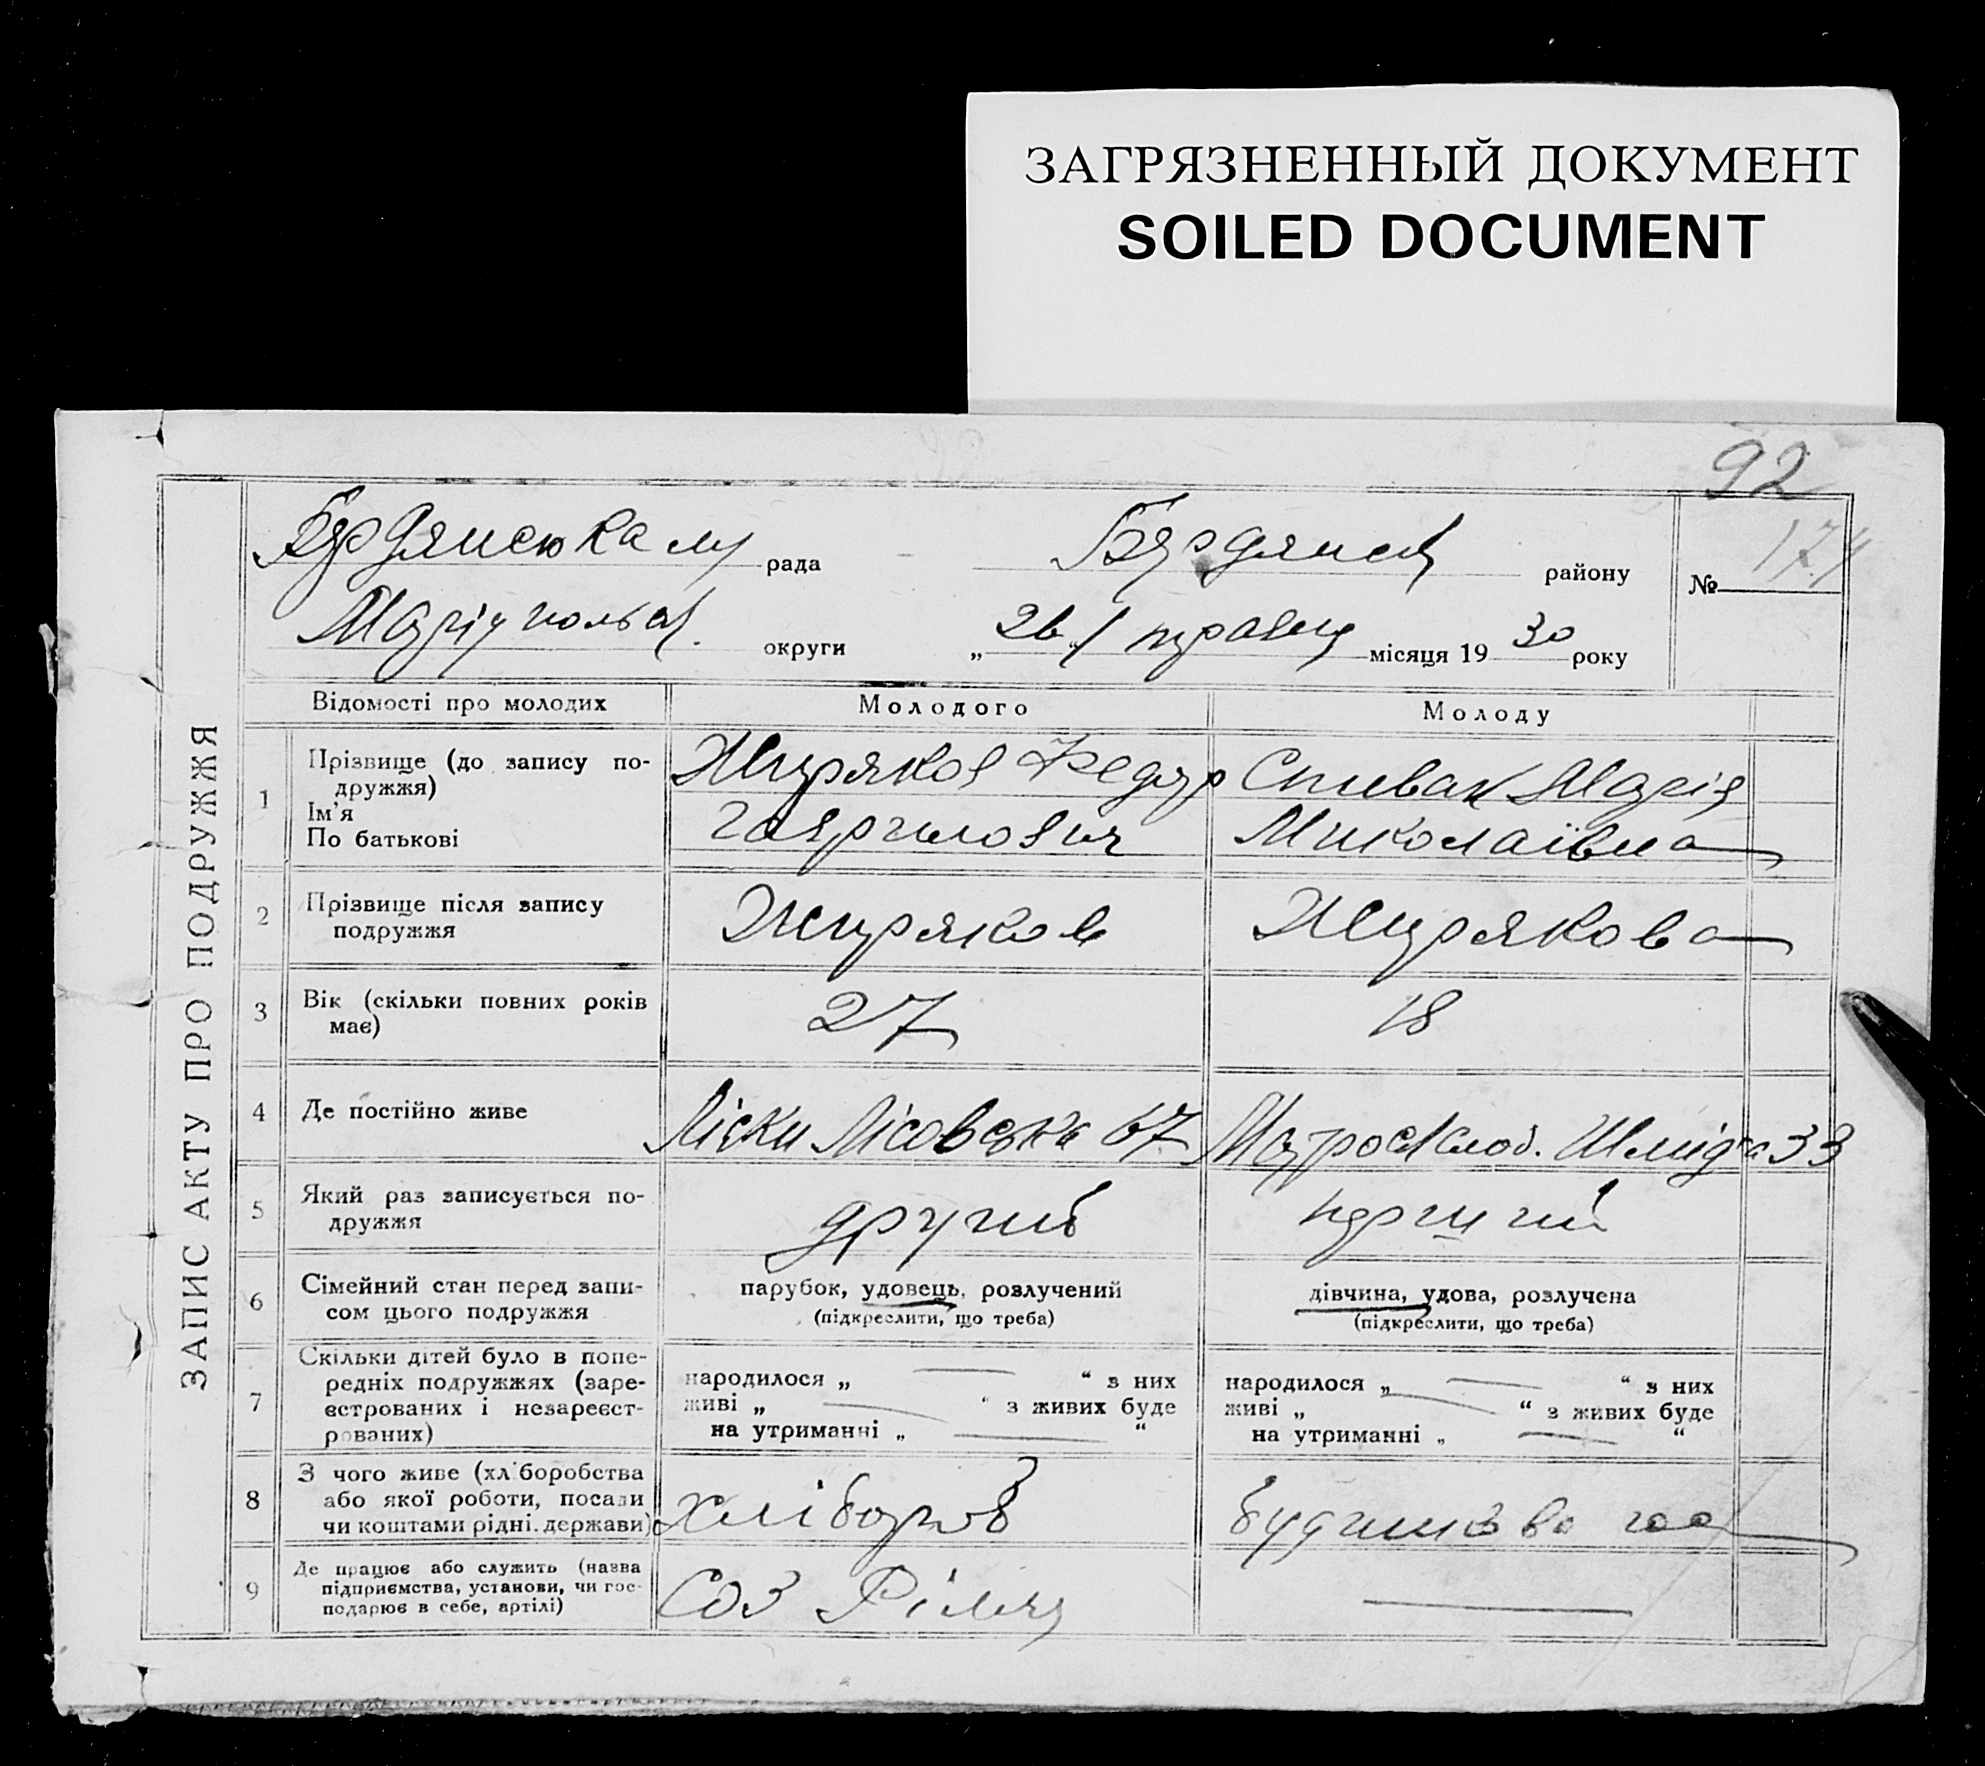 ЗАГРЯЗНЕННЫЙ ДОКУМЕНТ
SOILED DOCUMENT
92
ЗАПИС АКТУ ПРО ПОДРУЖЖЯ
Бердянська м рада Бердянськ району № 174
Маріупольськ. округи „ 26 “ травня місяця 19 30 року
Відомості про молодих Молодого Молоду
1 Прізвище (до запису подружжя) Жиряков Федор Спивак Марія
Ім'я
По батькові Гаврилович Миколаївна
2 Прізвище після запису подружжя Жиряков Жирякова
3 Вік (скільки повних років має) 27 18
4 Де постійно живе Ліски Лісовська 67 Матрос слоб. Шмідта 33
5 Який раз записується подружжя другий перший
6 Сімейний стан перед записом цього подружжя парубок, удовець, розлучений дівчина, удова, розлучена
(підкреслити, що треба) (підкреслити, що треба)
7 Скільки дітей було в попередніх подружжях (зареєстрованих і незареєстрованих) народилося „ — “ з них народилося „ — “ з них
живі „ — “ з живих буде живі „ — “ з живих буде
на утриманні „ — “ на утриманні „ — “
8 З чого живе (хліборобства або якої роботи, посади чи коштами рідні. держави) хлібороб
9 Де працює або служить (назва підприємства, установи, чи господарює в себе, артілі) Соз Рілля —